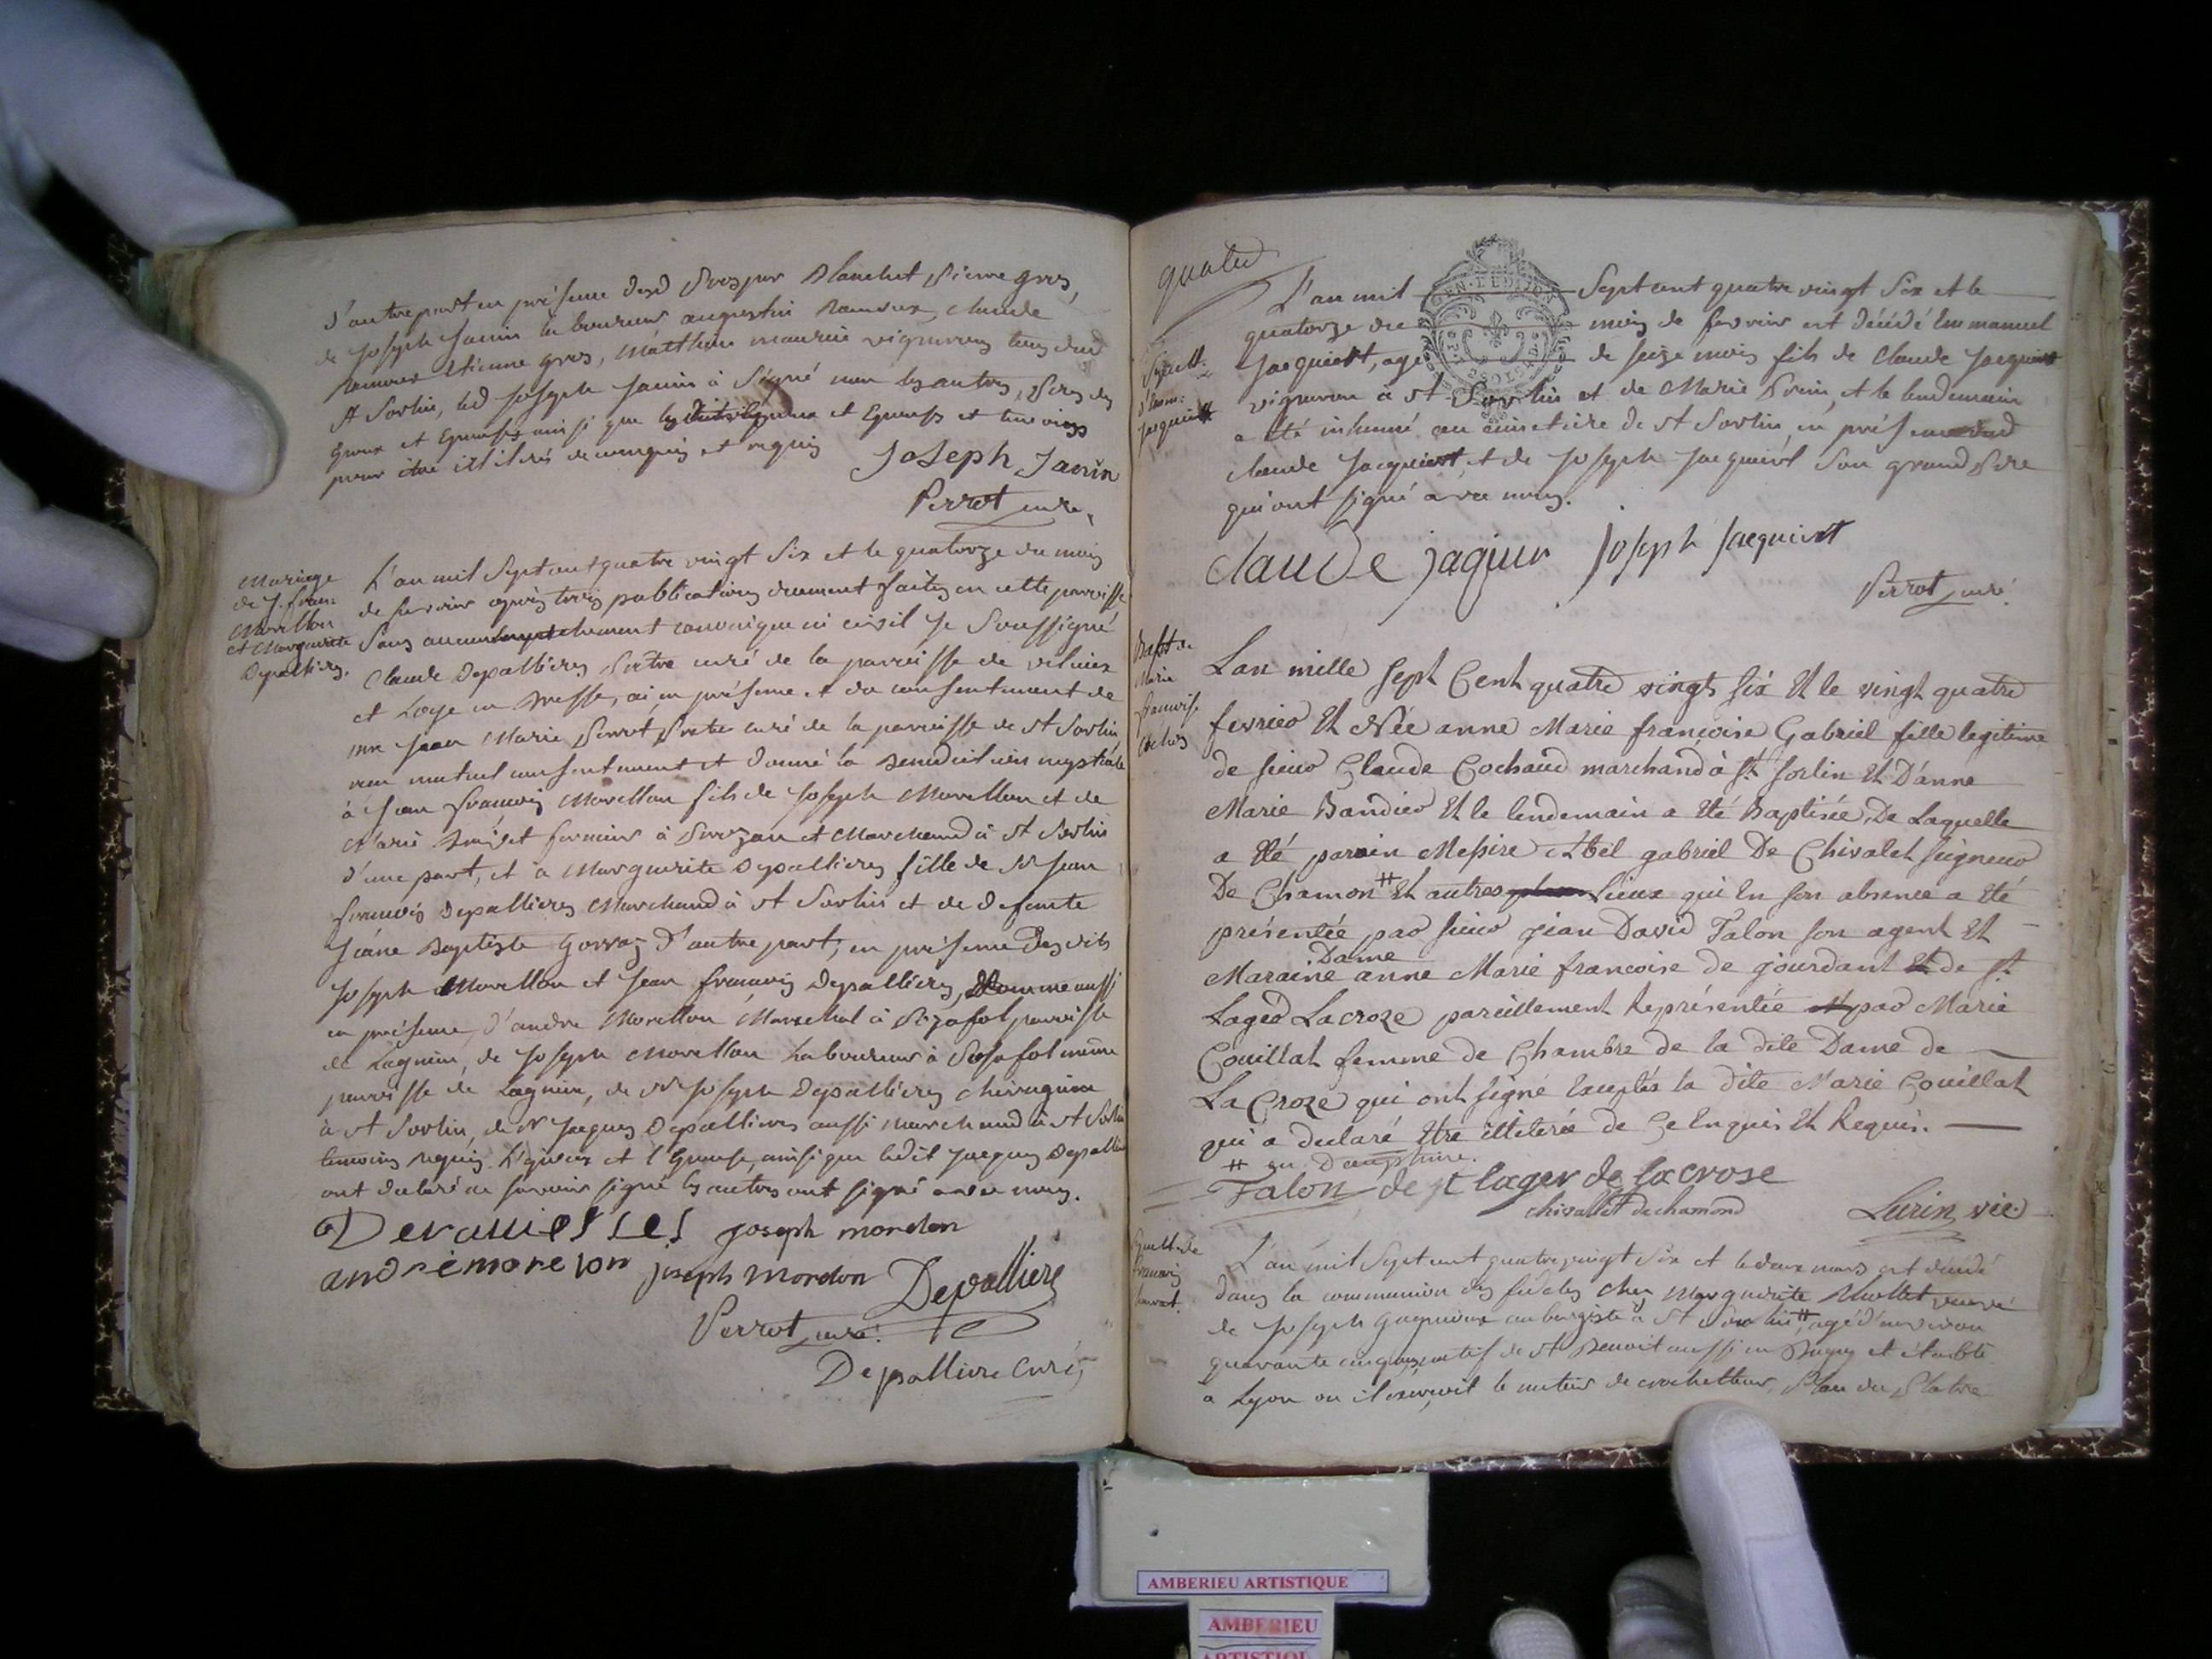 d'autre part en présence dud Prosper Blanchet Pierre gros,
de Joseph Janin laboureur augustin Ramoux, claude
Ramoux Etienne gros, Matthieu maurier vignerons tous dud
St Sorlin, led Joseph Janin à signé non les autres, Peres des
Epoux et Epouses ainsi que lesdits Epoux et Epouses et temoins
pour être illitérés de ce enquis et requis
Joseph Janin
Perrot curé
Mariage
de J. fran:
Morellon
et Marguerite
Depallieres.
L'an mil Sept cent quatre vingt Six et le quatorze du mois
de fevrier après trois publications duement faites en cette paroisse
Sans aucun empechement canonique ni civil Je Soussigné
Claude Depallieres Prêtre curé de la paroisse de
et Loye en Bresse, ai en présence et du consentement de
mre Jean Marie Perrot Prêtre curé de la paroisse de St Sorlin
reçu mutuel consentement et donné la Benediction nuptiale
à Jean françois Morellon fils de Joseph Morellon et de
Marie fermier à et Marchand à St Sorlin
d'une part, et à Marguerite Depallieres fille de Sr Jean
françois Depallieres Marchand à St Sorlin et de defunte
Jeane Baptiste Gorraz d'autre part; en présence desdits
Joseph Morellon et Jean françois Depallieres, comme aussi
en présence d'andré Morellon Marechal à paroisse
de Lagnieu, de Joseph Morellon Laboureur à même
paroisse de Lagnieu, de Sr Joseph Depallieres chirurgien
à St Sorlin, de Sr Jacques Depallieres aussi marchand à St Sorlin
temoins requis. L'époux et l'Epouse, ainsi que ledit Jacques Depallieres
ont declaré ne savoir signé les autres ont signé avec nous.
joseph morelon
andrémorelon joseph morelon Depalliere
Perrot curé.
Depalliere Curé
L'an mil Sept cent quatre vingt Six et le
quatorze du mois de fevrier est décédé Emmanuel
Jacquient, agé de seize mois fils de Claude Jacquient
vigneron à St Sorlin et de Marie et le lendemain
a été inhumé au cimetiere de St Sorlin en présence dud
claude Jacquient et de Joseph Jacquient Son grand Pere
qui ont signé avec nous.
claude jaquin Joseph Jacquient
Perrot curé
Bapt de
Marie
francoise
Lan mille sept Cent quatre vingts six Et le vingt quatre
fevrier Et Née anne Marie françoise Gabriel fille legitime
de sieur Claude Cochaud marchand à st sorlin Et D'anne
Marie Bandier Et le lendemain a Eté Baptisée, De Laquelle
a Eté parain Messire Abel gabriel De Chivalet seigneur
De Chamon # Et autres lieux qui En son absence a Eté
présentée par sieur jean David Talon son agent Et
Dame
Maraine anne Marie francoise de jourdant Et de st
Lager Lacroze pareillement Représentée par Marie
Couillat femme de Chambre de la dite Dame de
La Croze qui ont signé Exceptés la dite Marie Couillat
qui a declaré Etre illiterée de Ce Enquis Et Requis.
# en Dauphiné.
Talon de st lager de lacrose
chivallet de chamond Lurin vic
françois
L'an mil Sept cent quatre vingt Six et le deux mars est décédé
dans la communion des fideles chez Marguerite Mollet veuve
de Joseph Jacquient aubergiste à St Sorlin #, agé d'environ
quarante cinq ans, natif de St Benoit aussi en Bugey et établi
à Lyon ou il exerçoit le metier de crocheteur, Place du Platre
AMBERIEU ARTISTIQUE
AMBERIEU
ARTISTIQUE